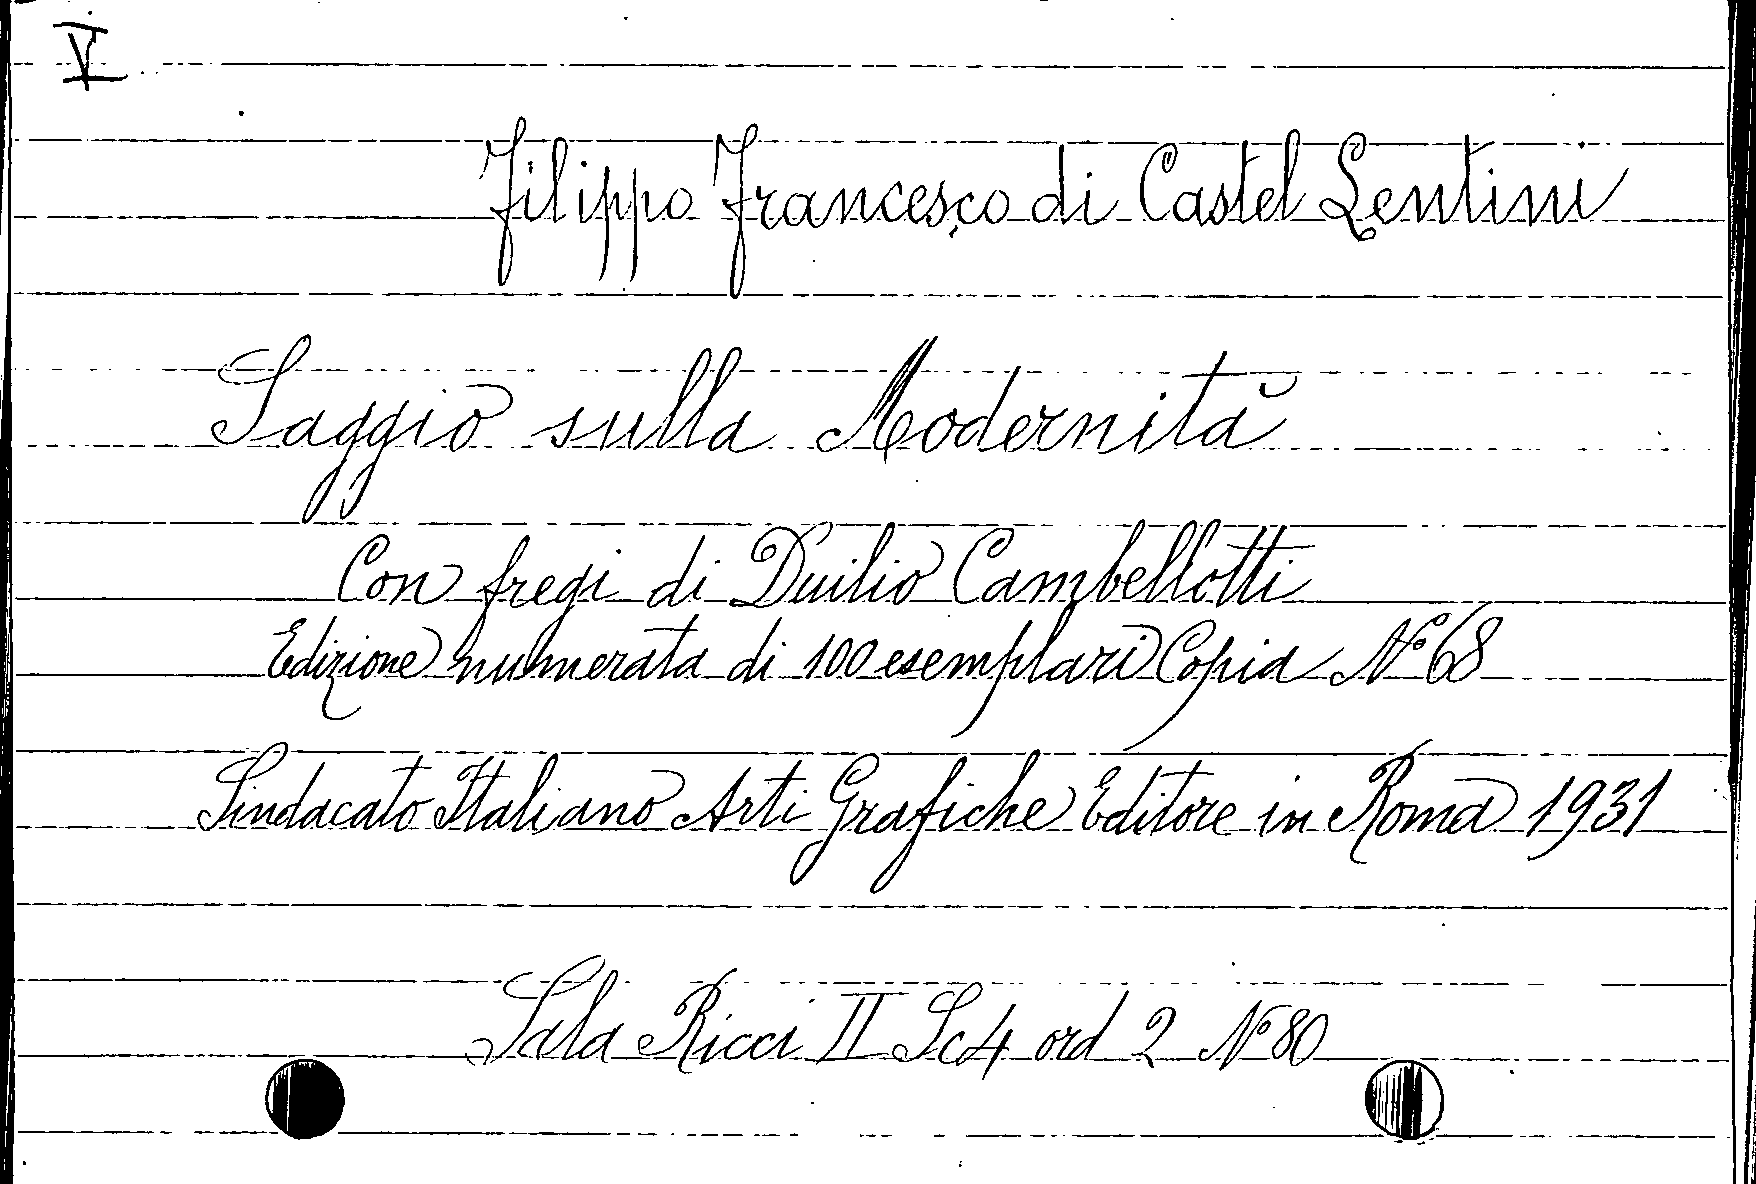 V
Filippo Francesco di Castel Lentini
Saggio sulla Modernità
Con fregi di Duilio Cambellotti
Edizione numerata di 100 esemplari Copia N° 68
Sindacato Italiano Arti Grafiche Editore in Roma 1931
Sala Ricci II Sc4 ord 2 N° 80